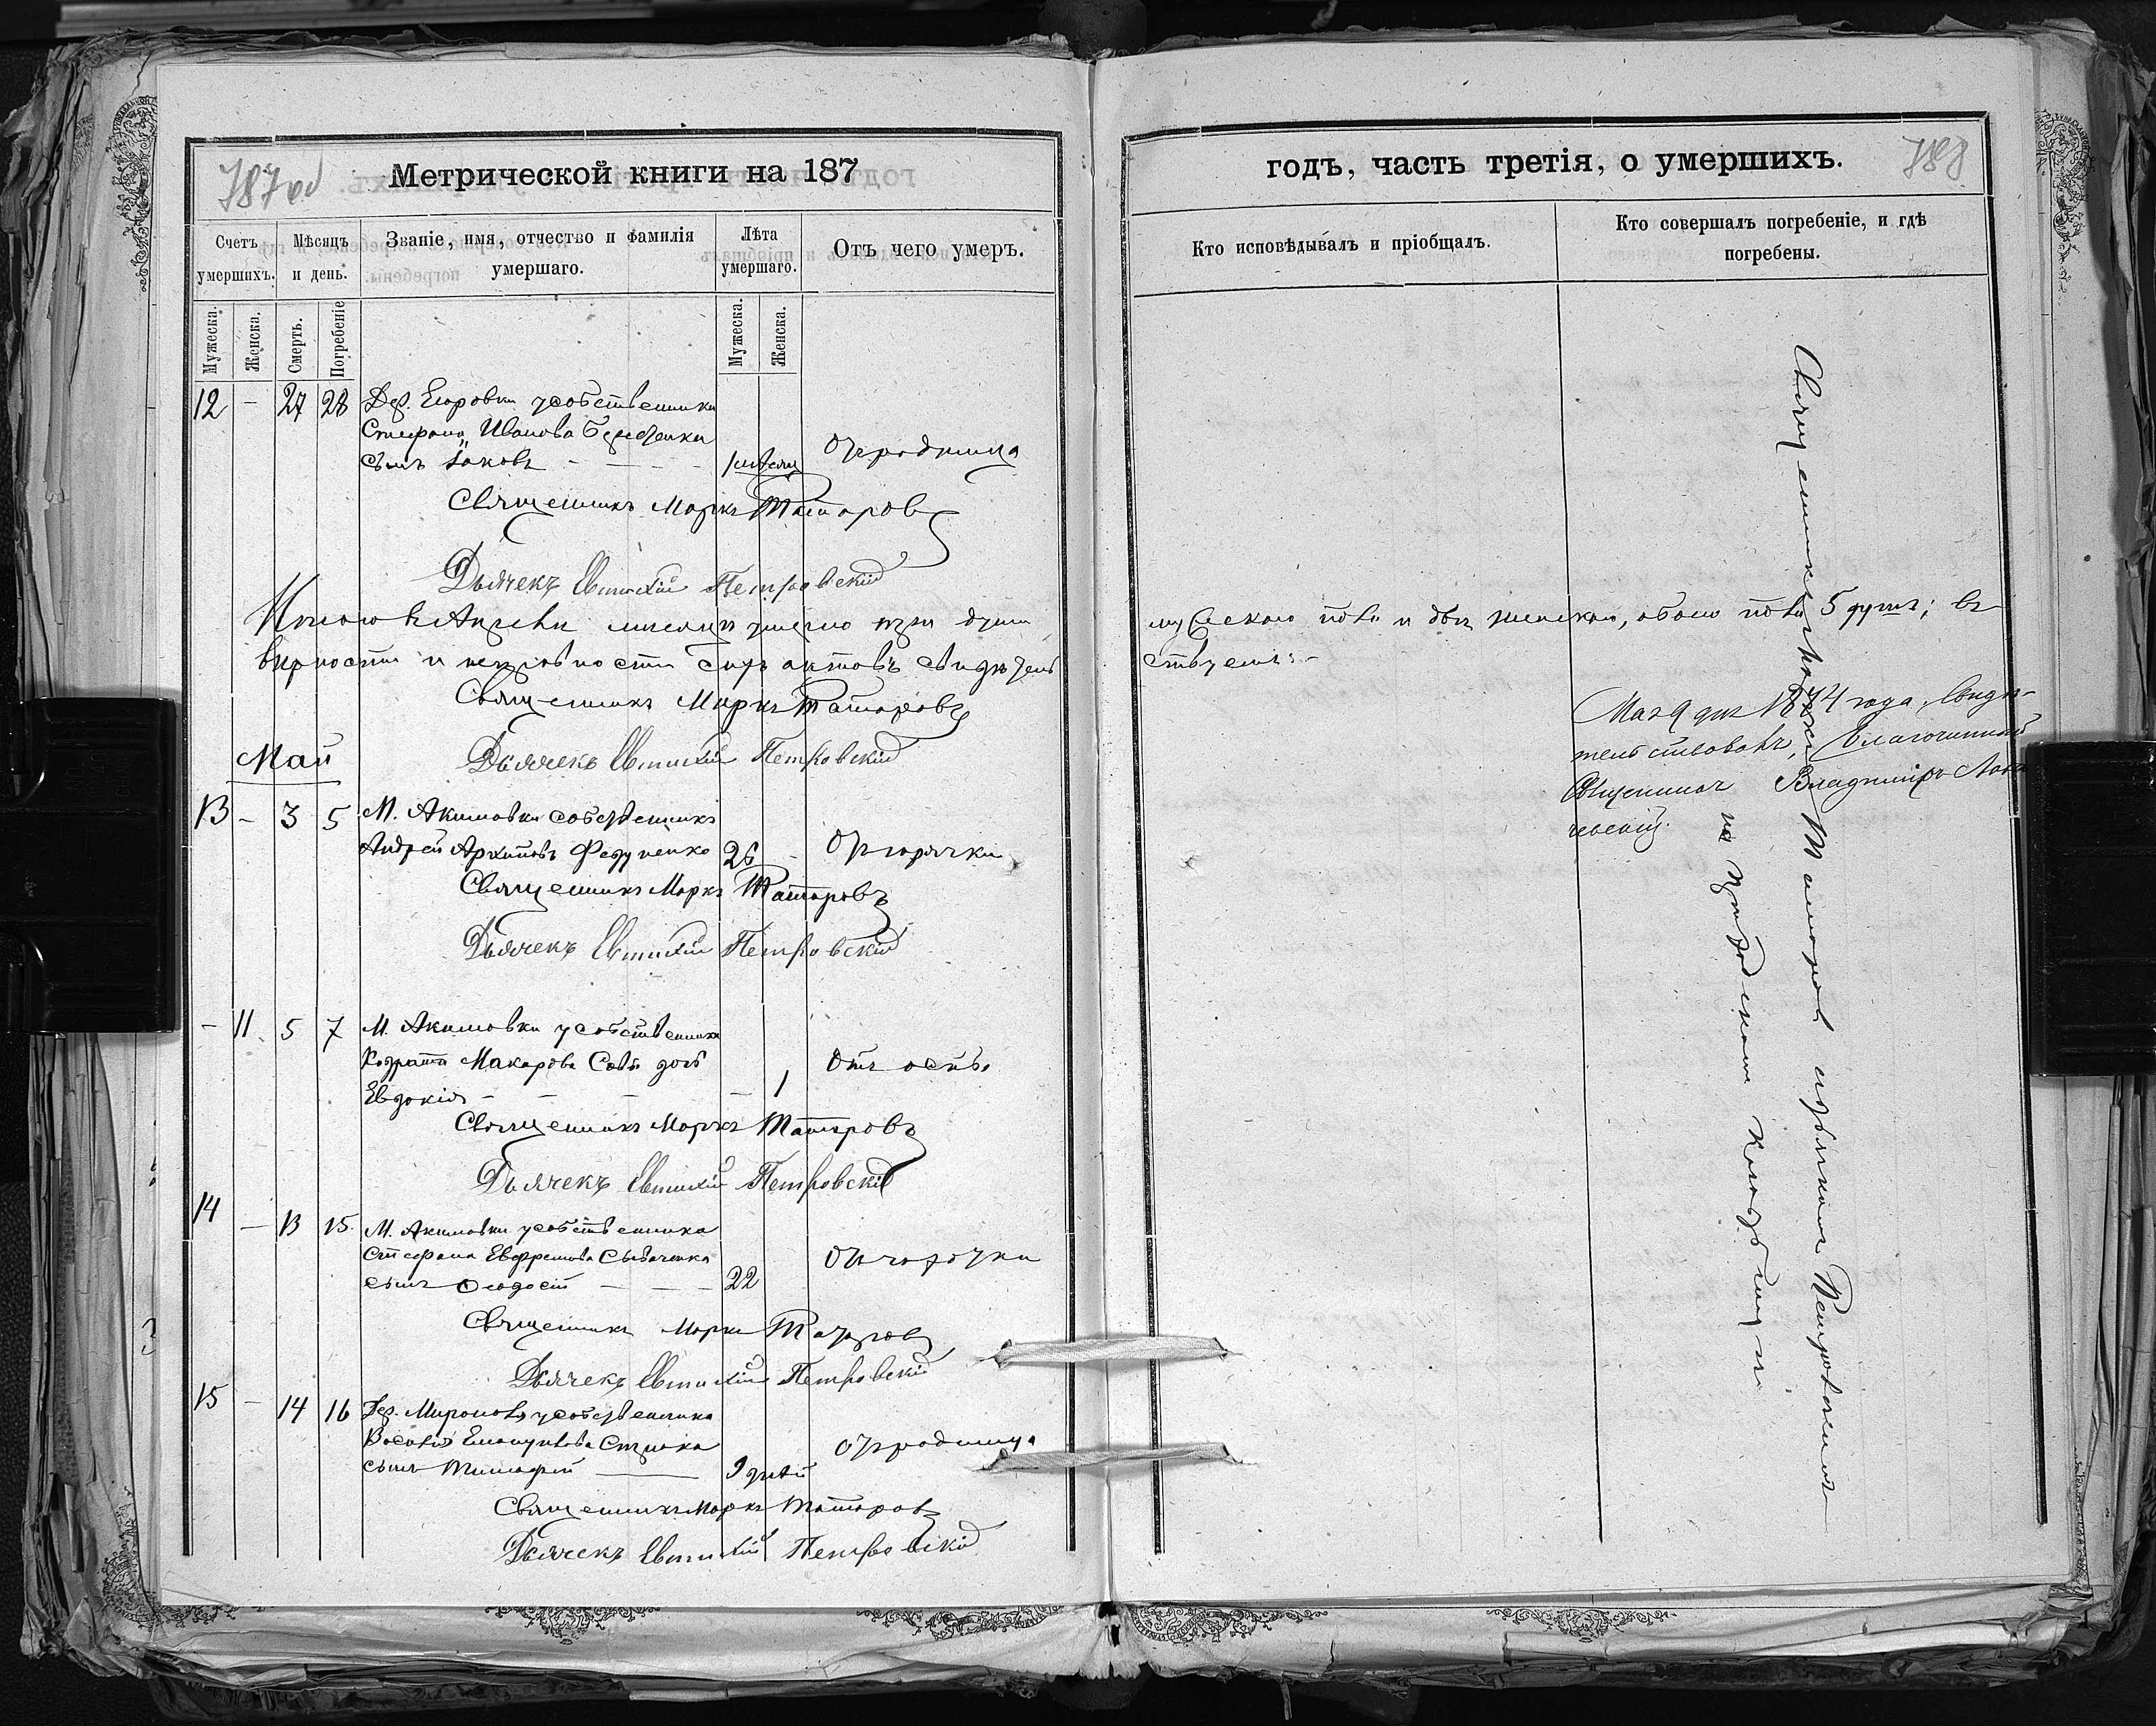 787 об
Метрической книги на 187
Счетъ умершихъ.
Мѣсяцъ и день.
Званіе, имя, отчество и фамилія умершаго.
Лѣта умершаго.
Отъ чего умеръ.
Мужеска.
Женска.
Смерть.
Погребеніе
Мужеска.
Женска.
12 - 27 28 Дер. Егоровки у собственника
Стефана Иванова
сынъ Іаковъ - - - - 1 недели Отъ родимца
Священникъ Маркъ Татаровъ
Дьячекъ Евтихій Петровскій
Итого въ Апрели месяце умерло три души
верности и сихъ актовъ свидетель
Священникъ Маркъ Татаровъ
Дьячекъ Евтихій Петровскій
Май
13 - 3 5 М. Акимовки собственникъ
Андрей Архиповъ Федуненко 26 - Отъ горячки
Священникъ Маркъ Татаровъ
Дьячекъ Евтихій Петровскій
- 11 5 7 М. Акимовки у собственника
Кодрата Макарова дочь
Евдокія - - - - 1 Отъ оспы
Священникъ Маркъ Татаровъ
Дьячекъ Евтихій Петровскій
14 - 13 15 М. Акимовки у собственника
Стефана Евфремова
сынъ Феодосій - - - 22 Отъ горячки
Священникъ Маркъ Татаровъ
Дьячекъ Евтихій Петровскій
15 - 14 16 Дер. Мироновки у собственника
Василія
сынъ Тимофей - 9 дней Отъ родимца
Священникъ Маркъ Татаровъ
Дьячекъ Евтихій Петровскій
годъ, часть третія, о умершихъ.
788
Кто исповѣдывалъ и пріобщалъ.
Кто совершалъ погребеніе, и гдѣ погребены.
мужескаго пола и две женскаго, обоего пола 5 душъ; въ
ствуемъ: -
Мая 9 дня 1874 года свиде-
тельствовалъ, Благочинный
Священникъ Владиміръ
Священникъ Маркъ Татаровъ Петровскимъ
на приходскомъ кладбищи